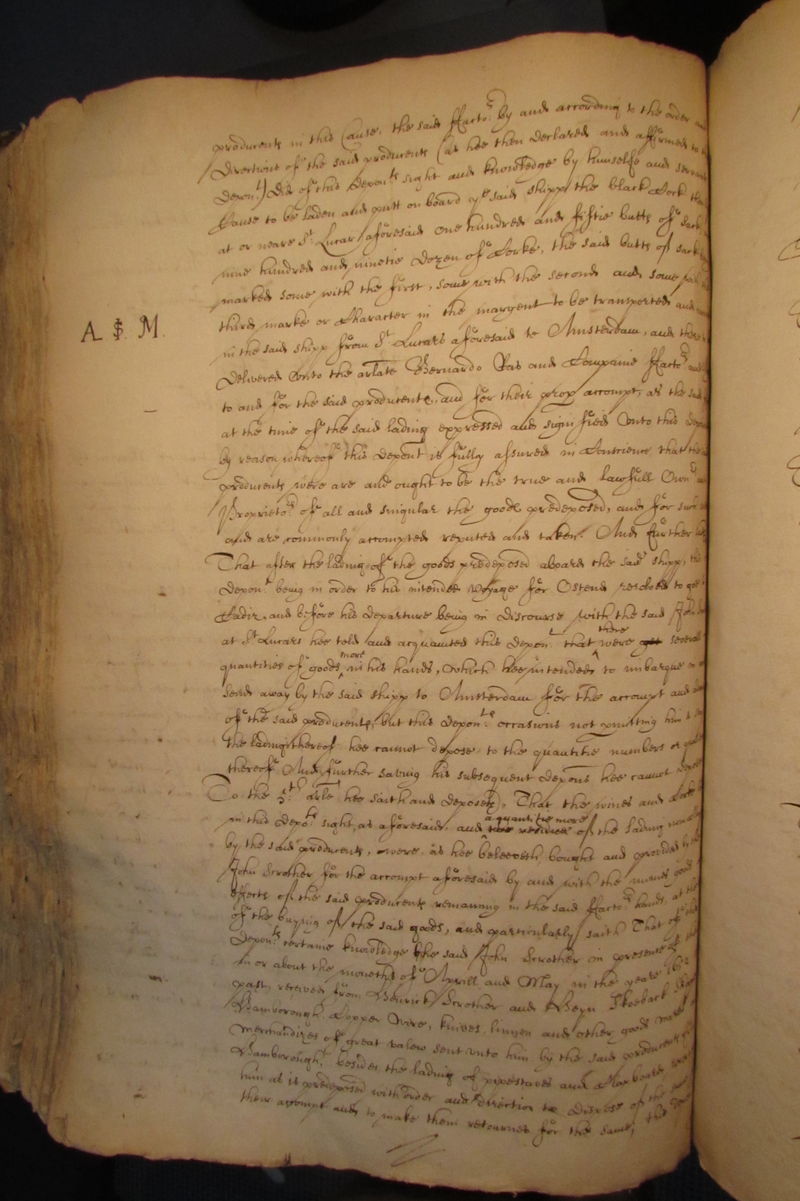 producents in this Cause, the said ffactor by and according to the order and
directions of the said producents (as hee then declared and affirmed to this
depont) did of this deponts sight and knowledge by himselfe and servants
Cause to be laden and putt on board ye said shipp the black Cock then
at or neare St Lucar aforesaid one hundred and fiftie butts of sack
nine hundred and ninetie dozen of Corke, the said butts of sack
marked some with the first, some with the second and some
third marke or Character in the margent to be transported and
A. $. M.
in the said shipp from St Lucars aforesaid to Amsterdam, and there
delivered unto the arlate Bernardo Vas and Companie ffactors
to and for the said producents, and for their prop accompt, as the said
at the time of the said lading expressed and signified unto this depont
by reason whereof this deponet is fully assured in Conscience that the
producents were are and ought to be the true and lawfull Owners
Proprietors of all and singular the goods predeposed, and for such
and are commonly accompted reputed and taken. And further
That after the lading of the goods predeposed aboard the said shipp, this
depont being in order to his intended voyage for Ostend resolved to goe
Cadiz, and before his departure being in discourse with the said John
at St Lucars hee told and acquainted this depont that there were severall
quantities of goods more in his hands, which hee intended to imbarque
send away by the said shipp to Amsterdam for the accompt and
of the said producents, but this deponts occasions not permitting him to
the lading thereof hee cannot depose to the quantitie numbers or
thereof And further saving his subsequent depons hee cannot depose
To the 5th arle hee saith and deposeth, That the wines and Corke
in this deponts sight, as aforesaid, and a quantitie more of the lading
by the said producents, were as hee beleeveth bought and provided by the
John Strother for the accompt aforesaid by and with the
effects of the said producents remaining in the said ffactors hands, at the
of the buying of the said goods, and particularly saith That of
deponts certaine knowledge the said John Strother in presence of
in or about the moneths of Aprill and May in the yeare 1652
past, received from Henrick Strother and
Hamborough, Copper wire, knives, linnen and other goods
Merchandizes of great valew sent unto him by the said producents
Hamborough, besides the lading of pipestaves and
him as is predeposed with order and direction to dispose of the
their accompt and to make them retournes for the same, this